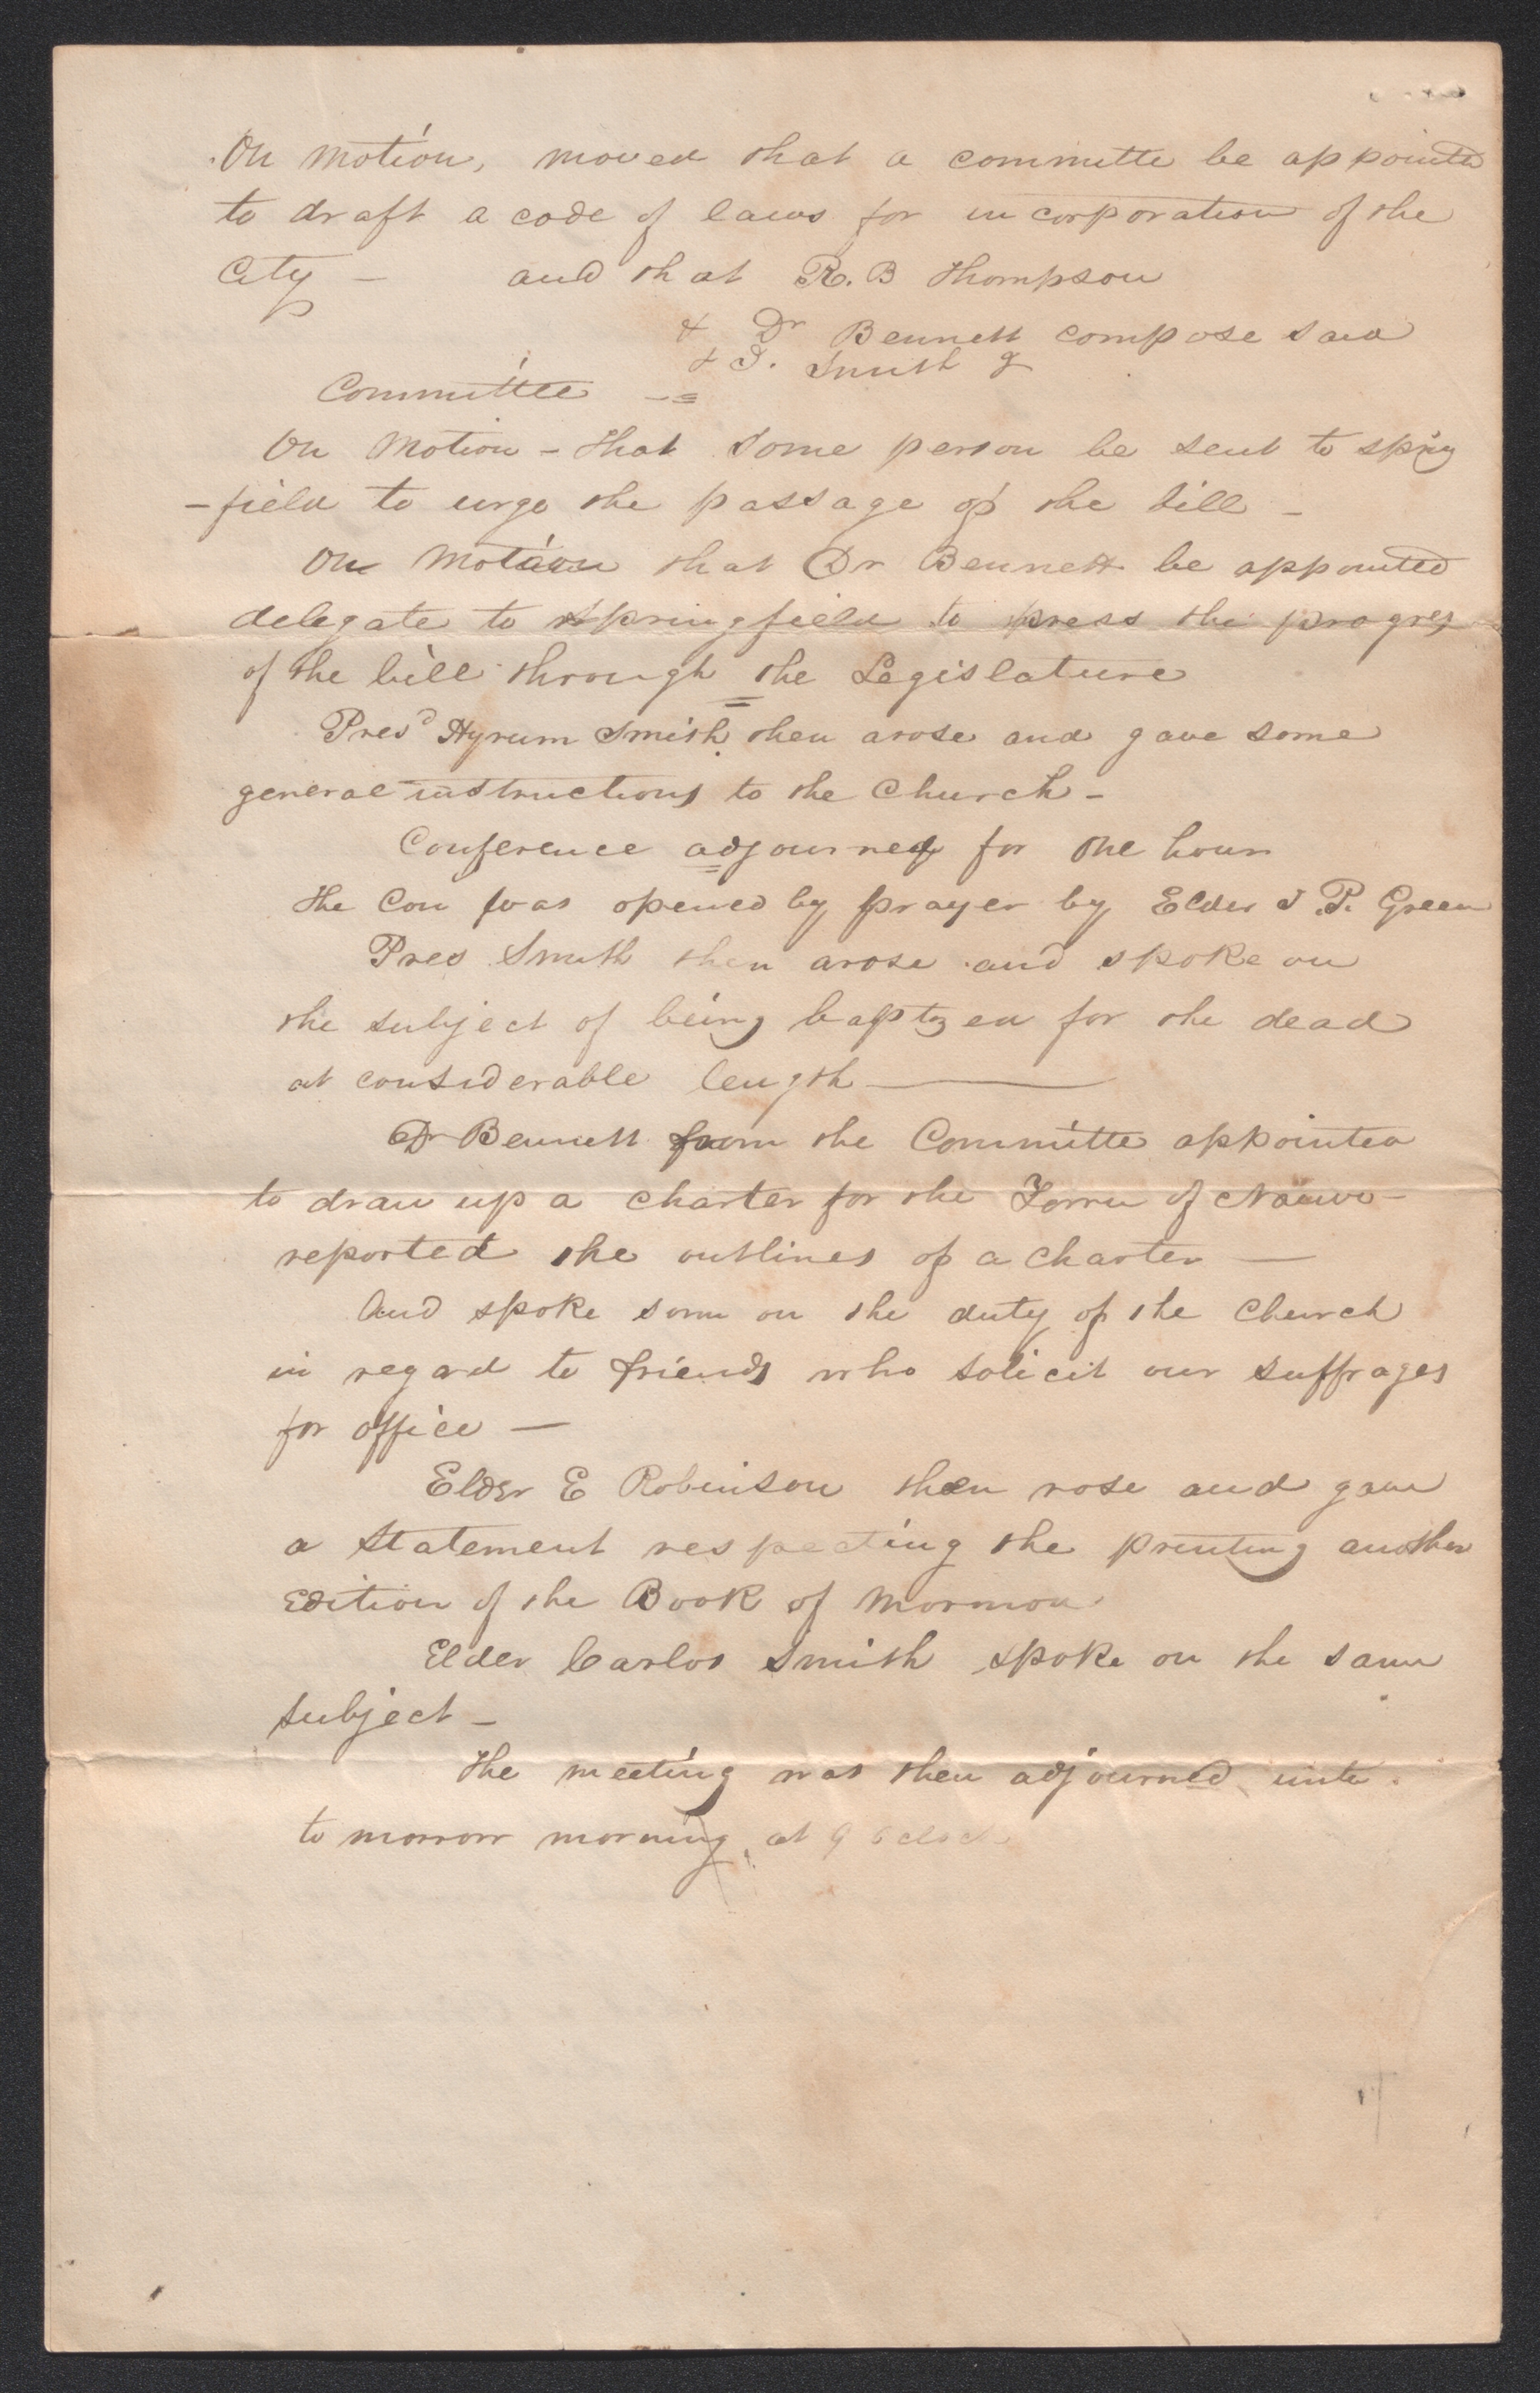 On motion, moved that a committe be appointed
to draft a code of laws for incorporation of the
City — and that R. B Thompson
& Dr Bennett compose said
& J. Smith Jr
Committee —=
On Motion – that some person be sent to spring
-field to urge the passage of the bill –
On Motion that Dr Bennett be appointed
delegate to Springfield to press the progress
of the bill through the Legislature
Presd Hyrum Smith then arose and gave some
general instructions to the Church –
Conference adjourned for one hour
The Con was opened by prayer by Elder J. P. Green
Pres Smith then arose and spoke on
the subject of being baptzed for the dead
at considerable length —
Dr Bennett from the Committe appointed
to draw up a charter for the Town of Nauvo-
reported the outlines of a charter —
And spoke some on the duty of the Church
in regard to friends who solicit our suffrages
for office —
Elder E Robinson then rose and gave
a statement respecting the printing another
Edition of the Book of Mormon
Elder Carlos Smith spoke on the same
subject –
The meeting was then adjourned unto
to morrow morning at 9 oclock